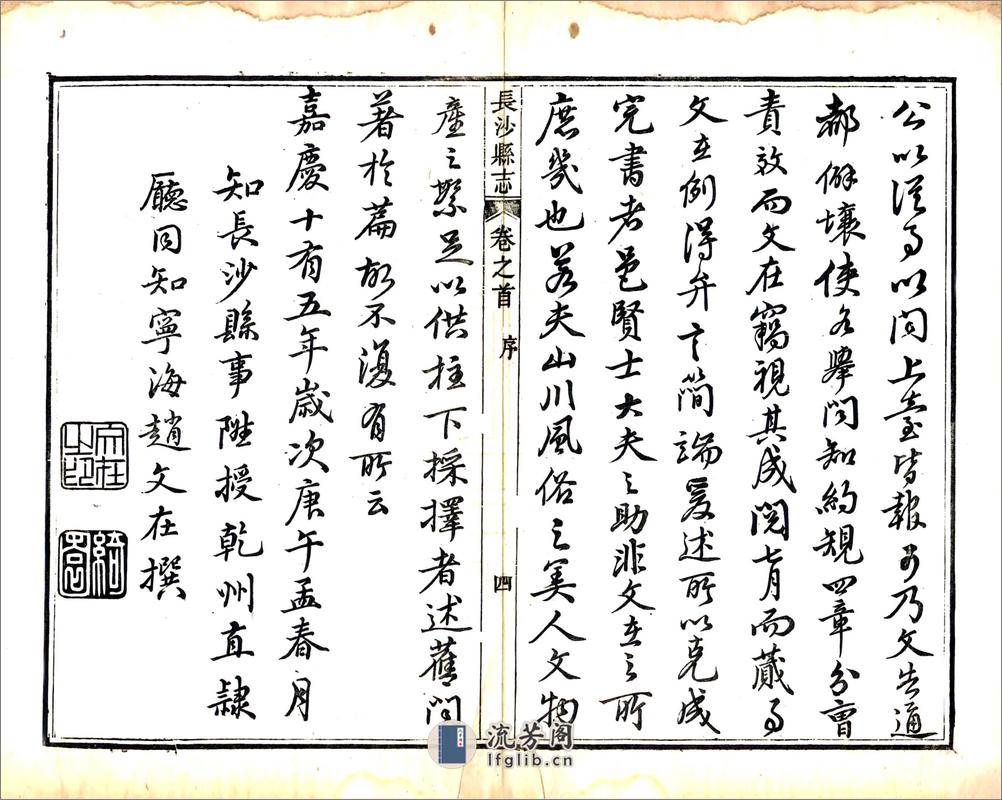 公以從事以問上臺皆報可乃文告通
都僻壤使各舉聞知約規四章分曹
責效而文在竊視其成閱七月而蕆事
文在例得弁言簡端爰述所以克成
完書者邑賢士大夫之助非文在之所
庶幾也若夫山川風俗之美人文物
長沙縣志 卷之首 序 四
產之繁足以供拄下採擇者述舊聞
著於篇故不復有所云
嘉慶十有五年歲次庚午孟春月
知長沙縣事陞授乾州直隸
廳同知寧海趙文在撰
文在之印
流芳閣
lfglib.cn